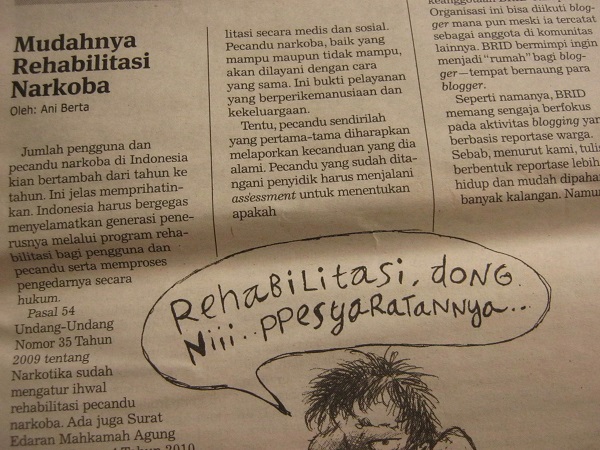 Mudahnya
Rehabilitasi
Narkoba
Oleh: Ani Berta
Jumlah pengguna dan
pecandu narkoba di Indonesia
kian bertambah dari tahun ke
tahun. Ini jelas memprihatin-
kan. Indonesia harus bergegas
menyelamatkan generasi pene-
rusnya melalui program reha-
bilitasi bagi pengguna dan
pecandu serta memproses
pengedarnya secara
hukum.
Pasal 54
Undang-Undang
Nomor 35 Tahun
2009 tentang
Narkotika sudah
mengatur ihwal
rehabilitasi pecandu
narkoba. Ada juga Surat
Edaran Mahkamah Agung
Tahun 2010
litasi secara medis dan sosial.
Pecandu narkoba, baik yang
mampu maupun tidak mampu,
akan dilayani dengan cara
yang sama. Ini bukti pelayanan
yang berperikemanusiaan dan
kekeluargaan.
Tentu, pecandu sendirilah
yang pertama-tama diharapkan
melaporkan kecanduan yang dia
alami. Pecandu yang sudah dita-
ngani penyidik harus menjalani
assessment untuk menentukan
apakah
Organisasi ini bisa diikuti blog-
ger mana pun meski ia tercatat
sebagai anggota di komunitas
lainnya. BRID bermimpi ingin
menjadi "rumah" bagi blog-
ger—tempat bernaung para
blogger.
Seperti namanya, BRID
memang sengaja berfokus
pada aktivitas blogging yan
berbasis reportase warga.
Sebab, menurut kami, tulis
berbentuk reportase lebih
hidup dan mudah dipaha
banyak kalangan. Namu
Rehabilitasi, dong.
Niii..ppesyaratannya..